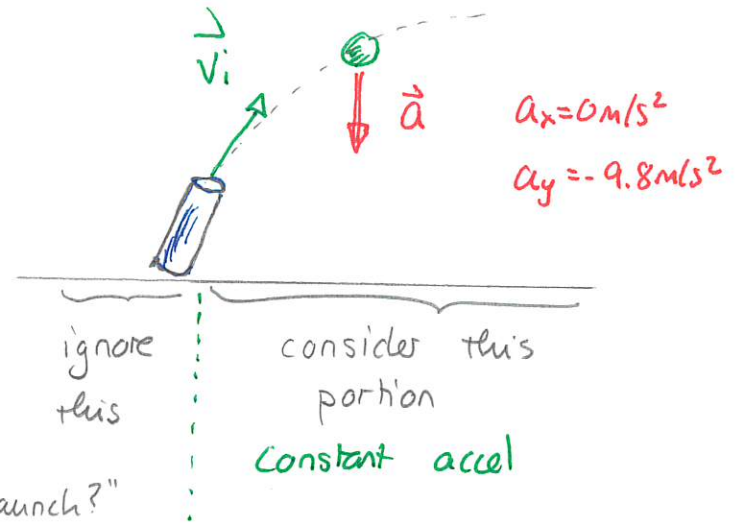 v⃗i
a⃗
ax=0m/s²
ay=-9.8m/s²
ignore
this
consider this
portion
constant accel
aunch?"